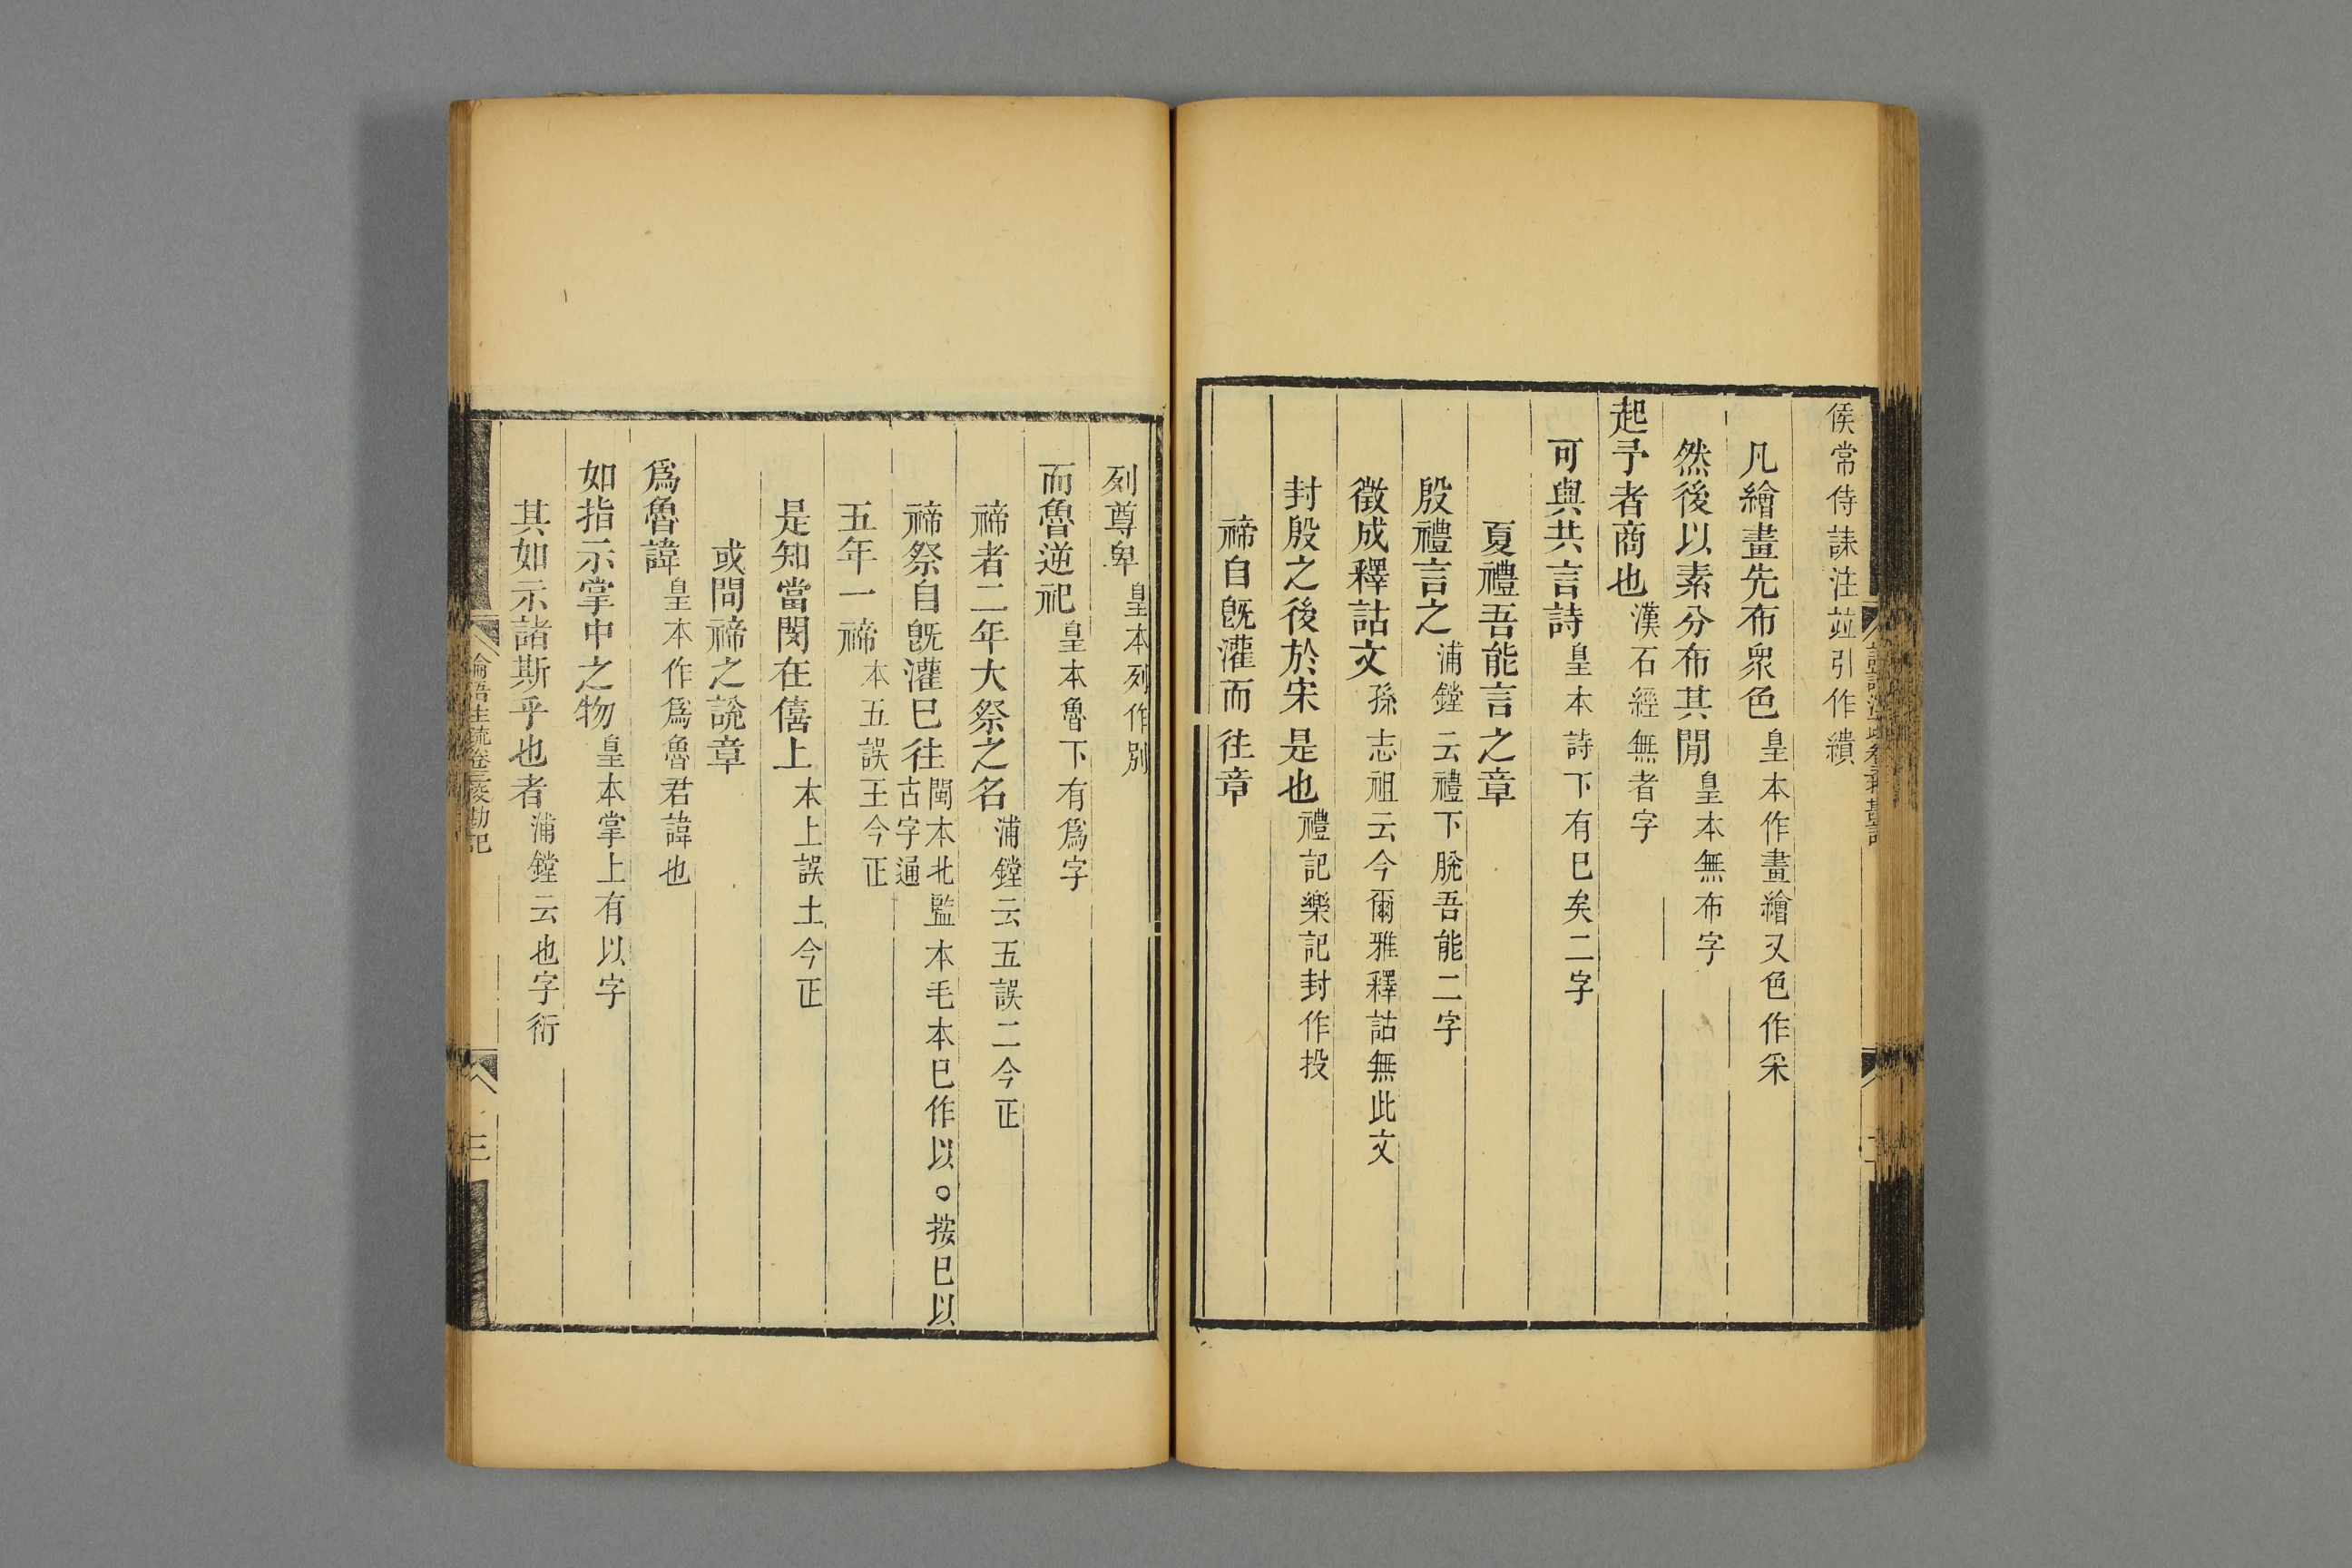 侯常侍誄注並引作繢
凡繪畫先布衆色皇本作畫繪又色作采
然後以素分布其閒皇本無布字
起予者商也漢石經無者字
可與共言詩皇本詩下有已矣二字
夏禮吾能言之章
殷禮言之浦鏜云禮下脫吾能二字
徵成釋詁文孫志祖云今爾雅釋詁無此文
封殷之後於宋是也禮記樂記封作投
禘自旣灌而往章
列尊卑皇本列作別
而魯逆祀皇本魯下有爲字
禘者二年大祭之名浦鏜云五誤二今正
禘祭自旣灌已往閩本北監本毛本已作以○按已以
古字通
五年一禘本五誤王今正
是知當閔在僖上本上誤土今正
或問禘之說章
爲魯諱皇本作爲魯君諱也
如指示掌中之物皇本掌上有以字
其如示諸斯乎也者浦鏜云也字衍
論語注疏卷三校勘記
三